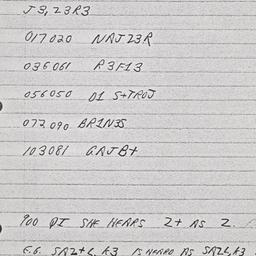 J3,Z3R3
017020 NAJZ3R
036061 R3F13
056050 D1 S+TR0J
072090 BR1N3S
103081 GAJB+
900 DI SHE HEARS Z+ AS Z.
E.G. SAZ+L, K3 IS HEARD AS SAZL, K3